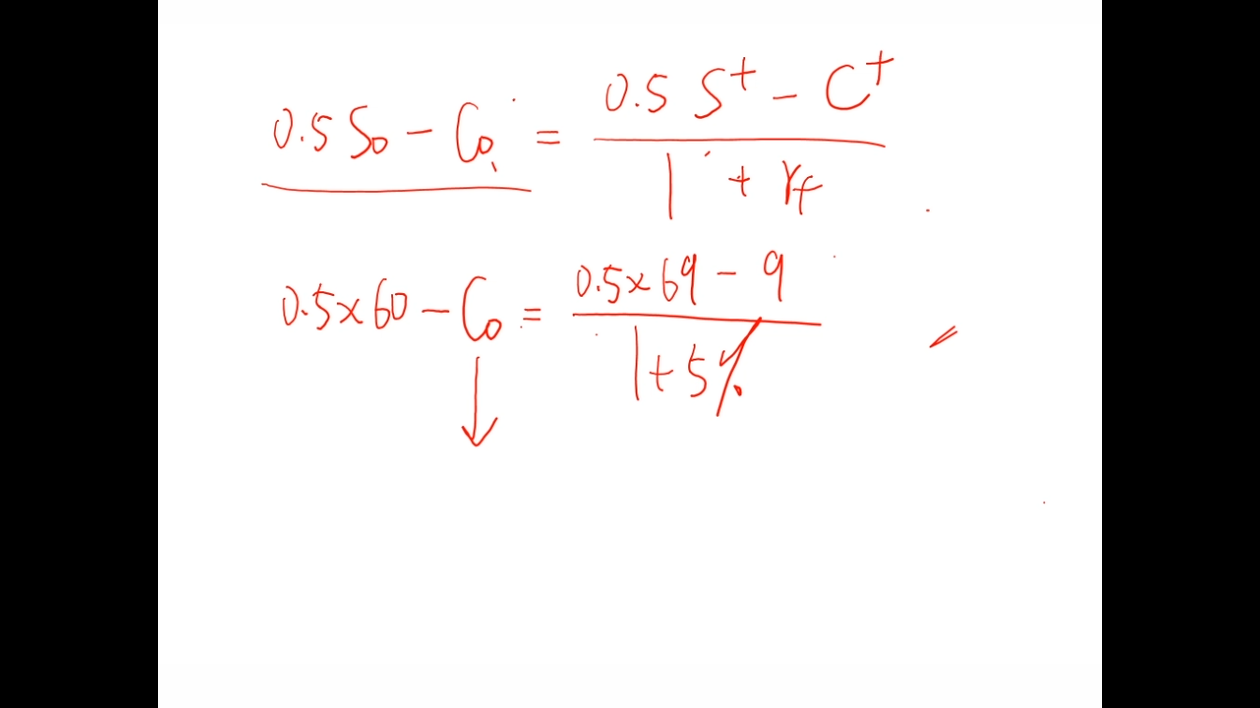 0.5 S₀ − C₀ = (0.5 S⁺ − C⁺) / (1 + rf)
0.5×60 − C₀ = (0.5×69 − 9) / (1+5%)